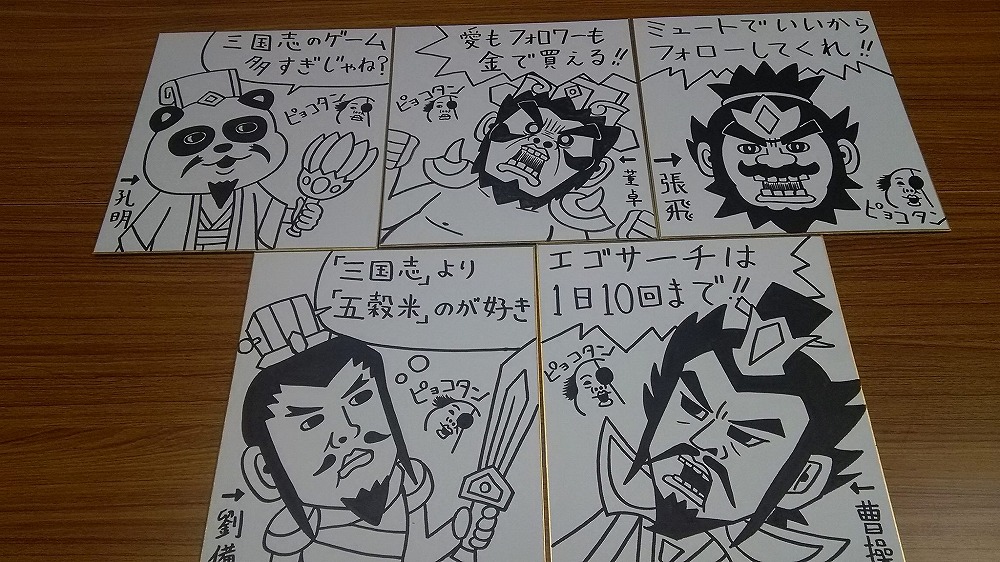 三国志のゲーム
多すぎじゃね?
ピョコタン
→孔明
愛もフォロワーも
金で買える!!
ピョコタン
←董卓
ミュートでいいから
フォローしてくれ!!
→張飛
ピョコタン
「三国志」より
「五穀米」のが好き
ピョコタン
→劉備
エゴサーチは
1日10回まで!!
ピョコタン
←曹操